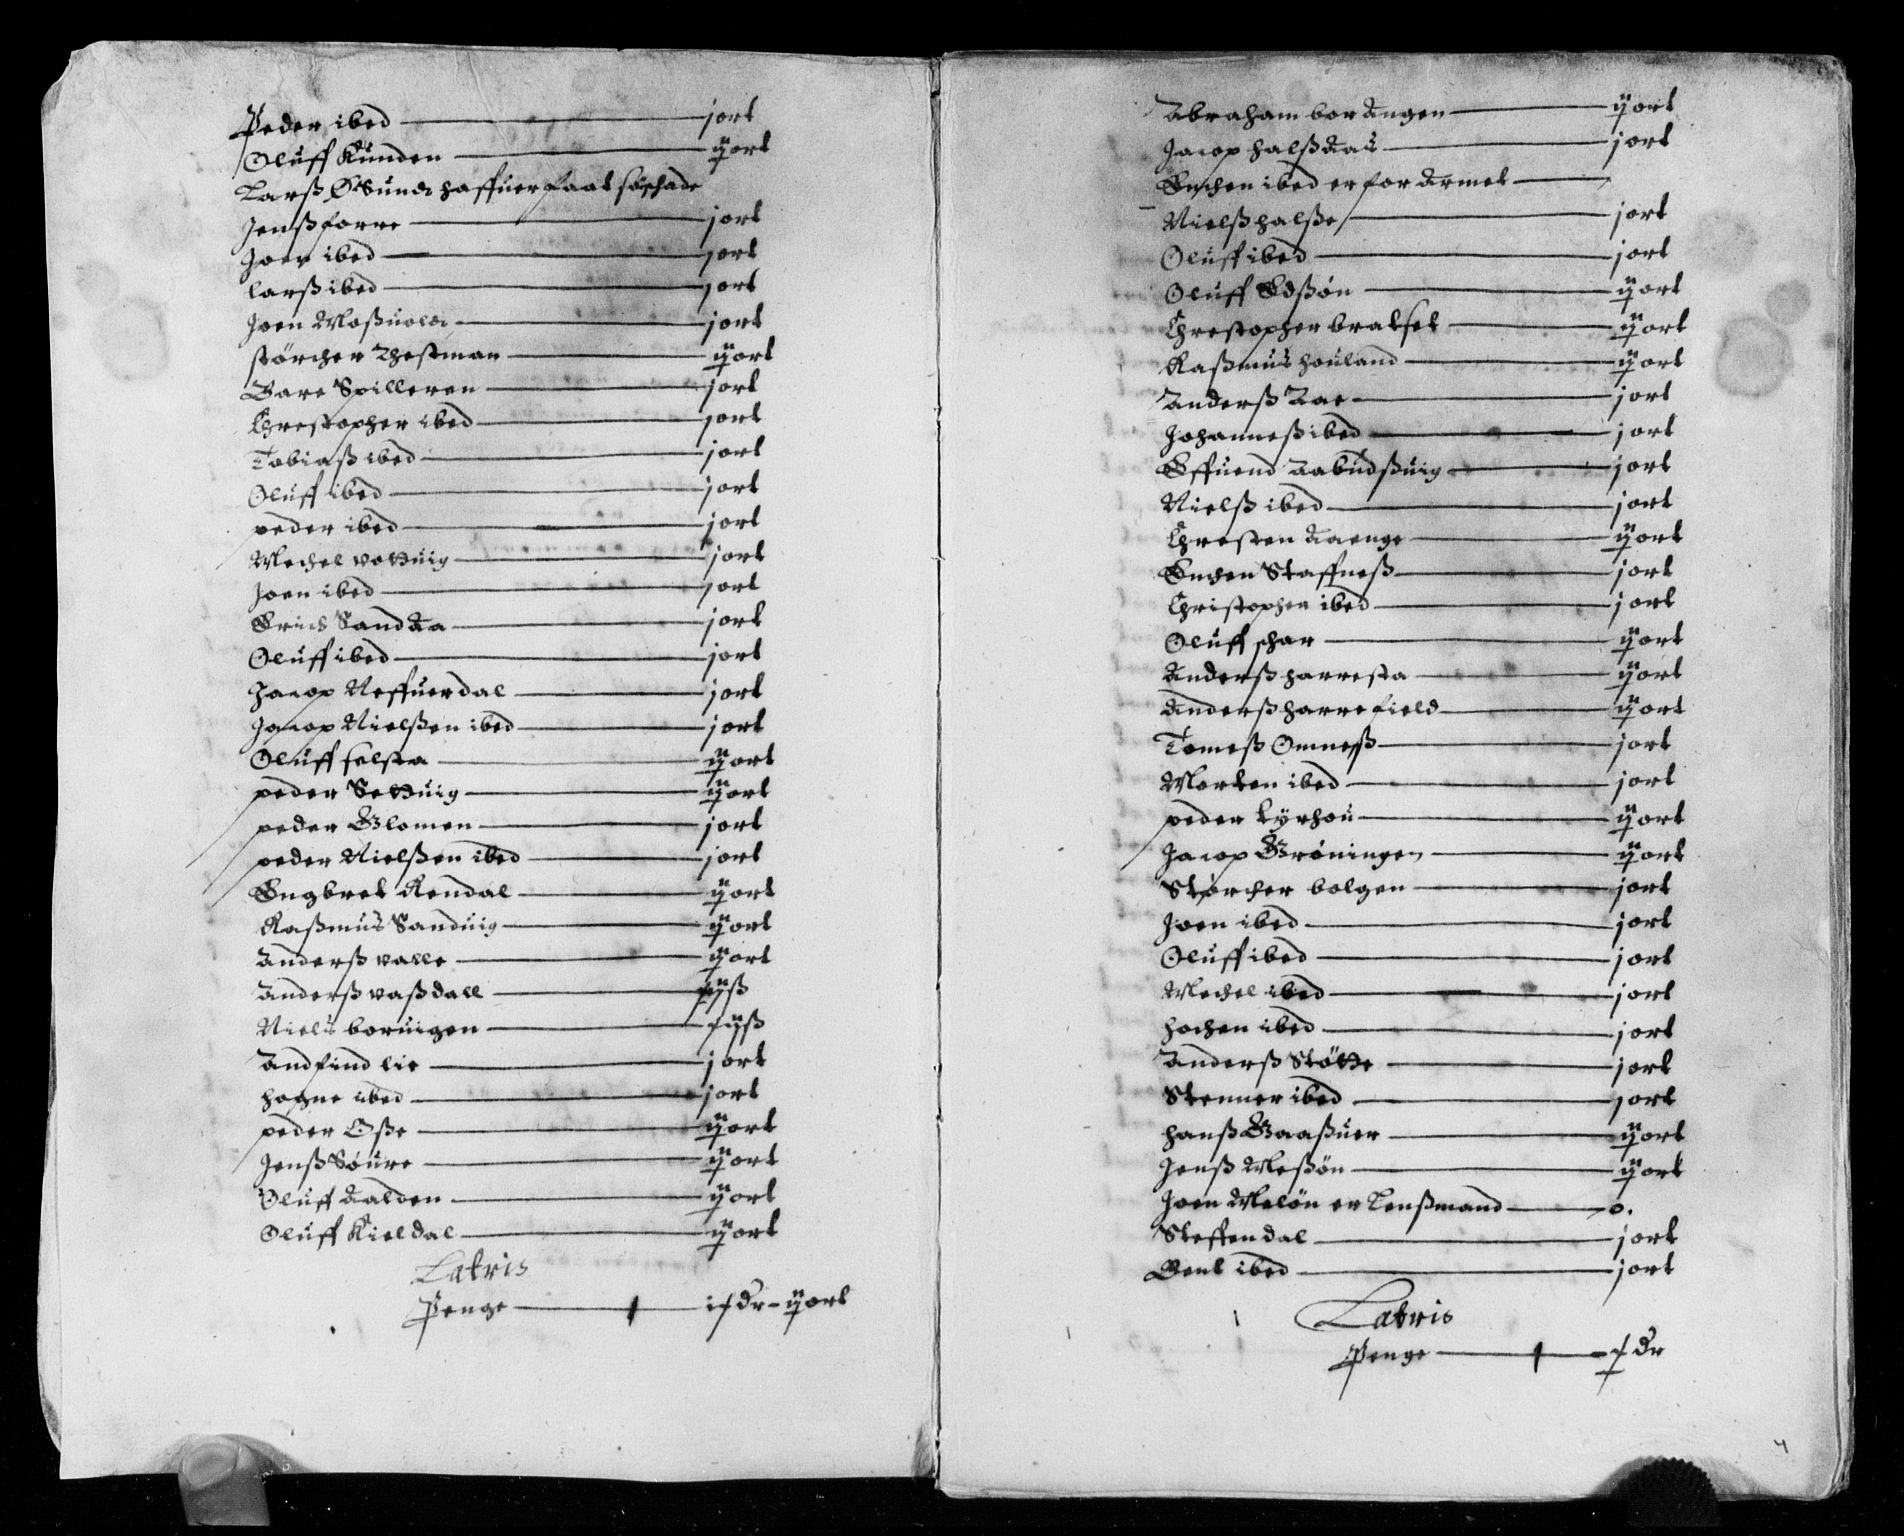 Peder ibed — j ort
Oluff Kunden — ij ort
Larß Gsunds haffuer faat søschade
Jenß forre — j ort
Joen ibed — j ort
larß ibed — j ort
Joen Moßuold — j ort
størcher Thestman — ij ort
Bare Spilleren — j ort
Chrestopher ibed — j ort
Tobiaß ibed — j ort
Oluff ibed — j ort
peder ibed — j ort
Mechel vottuig — j ort
Joen ibed — j ort
Erich Sandaa — j ort
Oluff ibed — j ort
Jacop Neffuerdal — j ort
Jacop Nielßen ibed — j ort
Oluff selsta — ij ort
peder Settuig — ij ort
peder Glomen — j ort
peder Nielßen ibed — j ort
Engbret Rendal — ij ort
Raßmus Sanduig — ij ort
Anderß valle — ij ort
Anderß vaßdall — ß
Niels boruigen — ß
Andfind lie — j ort
hogne ibed — j ort
peder Oße — ij ort
Jenß Søure — ij ort
Oluff Aalden — ij ort
Oluff Kieldal — ij ort
Latris
Penge — dr – ij ort
Abraham bordngen — ij ort
Jacop halßaas — j ort
Enchen ibed er forarmet —
Nielß halße — j ort
Oluff ibed — j ort
Oluff Edßøn — ij ort
Chrestopher bratset — ij ort
Raßmus houland — ij ort
Anderß Aae — j ort
Johanneß ibed — j ort
Effuend Aabudßuig — j ort
Nielß ibed — j ort
Chresten Aaenge — ij ort
Enchen Staffneß — j ort
Christopher ibed — j ort
Oluff schar — ij ort
Anderß harresta — ij ort
Anderß harrefield — ij ort
Tomeß Omneß — j ort
Morten ibed — j ort
peder kyrhou — ij ort
Jacop Grøningen — ij ort
Størcher bolgen — j ort
Joen ibed — j ort
Oluff ibed — j ort
Mechel ibed — j ort
hochen ibed — j ort
Anderß Støtte — j ort
Stenner ibed — j ort
hanß Gaaßuer — ij ort
Jenß Meßøn — ij ort
Joen Meløn er Lenßmand — o.
Steffendal — j ort
Bent ibed — j ort
Latris
Penge — dr